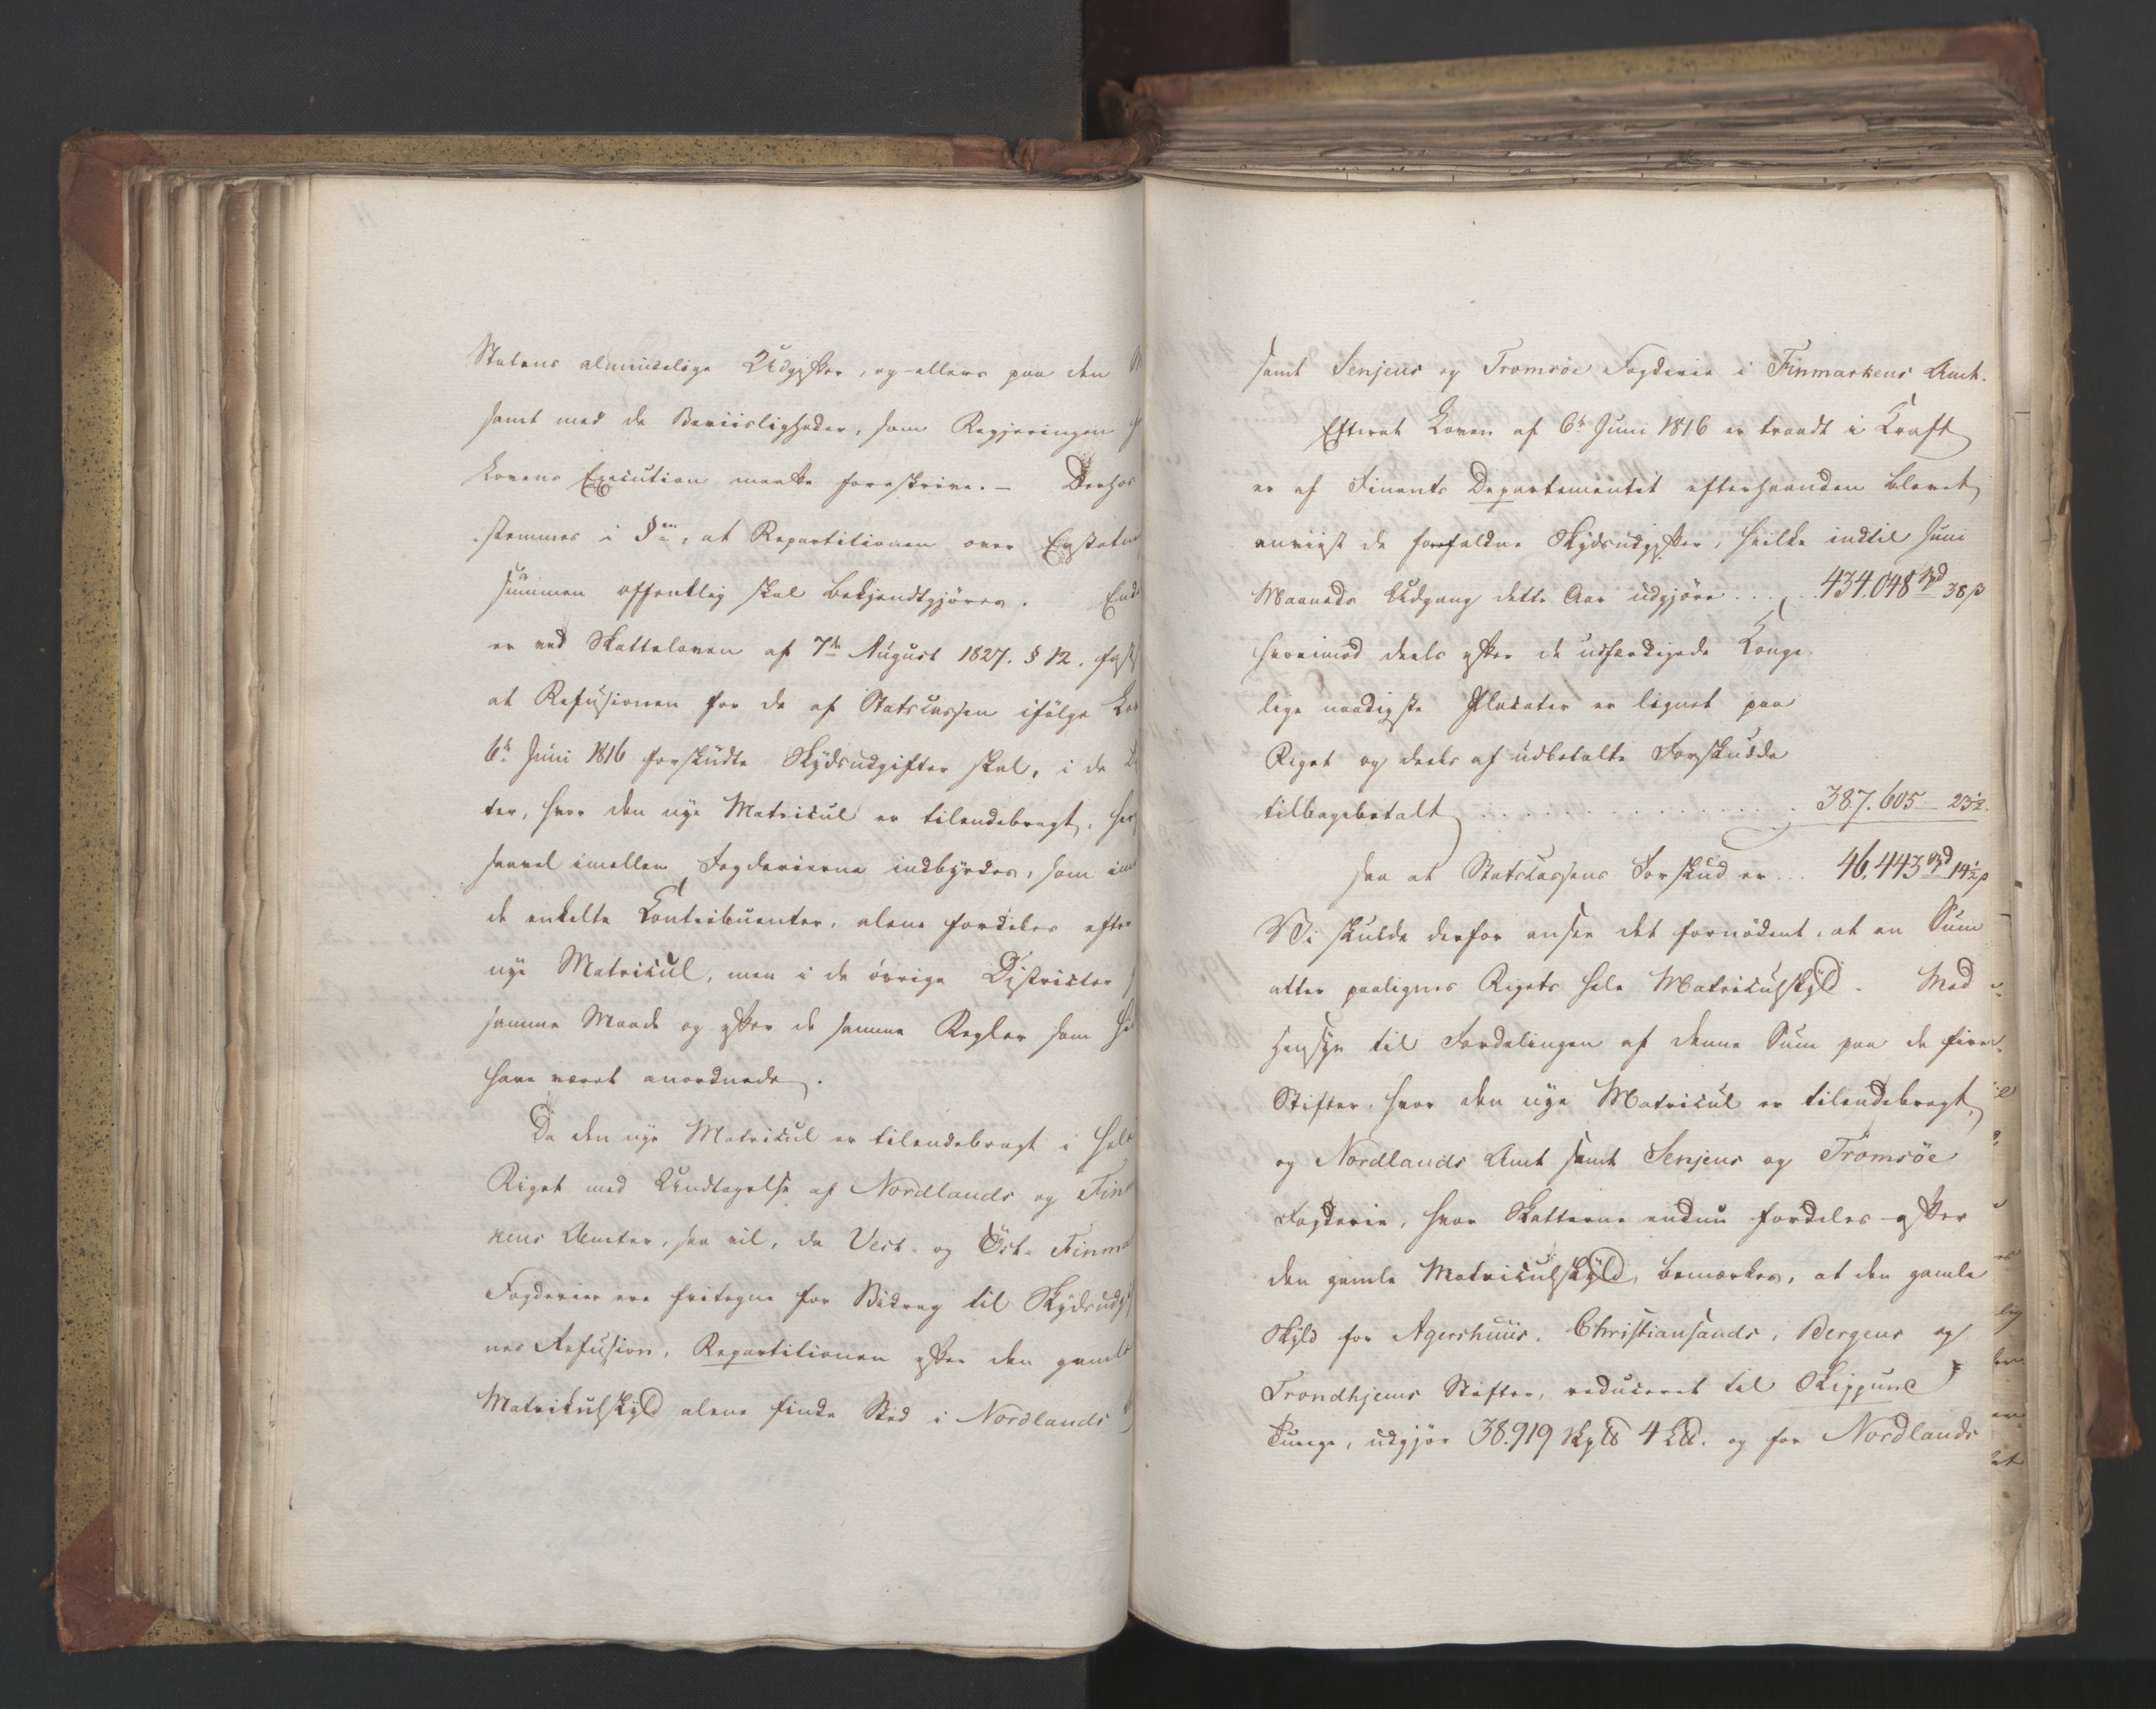 Statens almindelige Udgifter, og ellers paa den
samt med de Beviisligheder, som Regjeringen
Lovens Execution maatte foreskrive. - Derhos
stemmes i §en, at Repartitionen over Erstatni
summen offentlig skal bekjendtgjøres. End
er ved Skatteloven af 7de August 1827. § 12. fast
at Refusionen for de af Statscassen ifølge Lov
6te Juni 1816 forskudte Skydsudgifter skal, i de
ter, hvor den nye Matricul er tilendebragt,
saavel imellem Fogderierne indbyrdes, som im
de enkelte Contribuenter, alene fordeles efter
nye Matricul, men i de øvrige Districter
samme Maade og efter de samme Regler som hi
have været anordnede.
Da den nye Matricul er tilendebragt i hele
Riget med Undtagelse af Nordlands og Finm
kens Amter, saa vil, da Vest- og Öst- Finma
Fogderier ere fritagne for Bidrag til Skydsudgi
nes Refusion, Repartitionen efter den gamle
Matriculskyld alene finde Sted i Nordlands
samt Senjens og Tromsöe Fogderie i Finmarkens Amt.
Efterat Loven af 6te Juni 1816 er traadt i Kraft
er af Finants Departementet efterhaanden blevet
anviist de forefaldne Skydsudgifter, hvilke indtil Juni
Maaneds Udgang dette Aar udgjøre . . . . 434.048 Spd 38 ß
hvorimod deels efter de udfærdigede Konge-
lige naadigste Placater er lignet paa
Riget og deels af udbetalte Forskudde
tilbagebetalt . . . . . . . . . . . . . . . 387.605 - 23½.
saa at Statscassens Forskud er . . . 46.443 Spd 14½ ß
Vi skulde derfor ansee det fornödent, at en Sum
atter paalignes Rigets hele Matriculskyld. Med
Hensyn til Fordelingen af denne Sum paa de fire
Stifter, hvor den nye Matricul er tilendebragt,
og Nordlands Amt samt Senjens og Tromsöe
Fogderie, hvor Skatterne endnu fordeles efter
den gamle Matriculskyld, bemærkes, at den gamle
Skyld for Agershuus, Christiansands, Bergens og
Trondhjems Stifter, reduceret til Skippund
Tunge, udgjør 38.919 Skp℔ 4 L℔. og for Nordlands